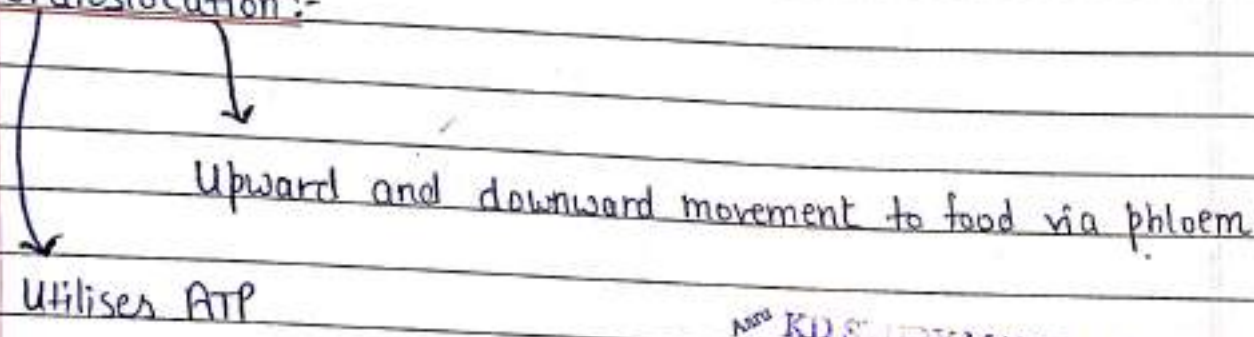 Upward and downward movement to food via phloem
Utilises ATP